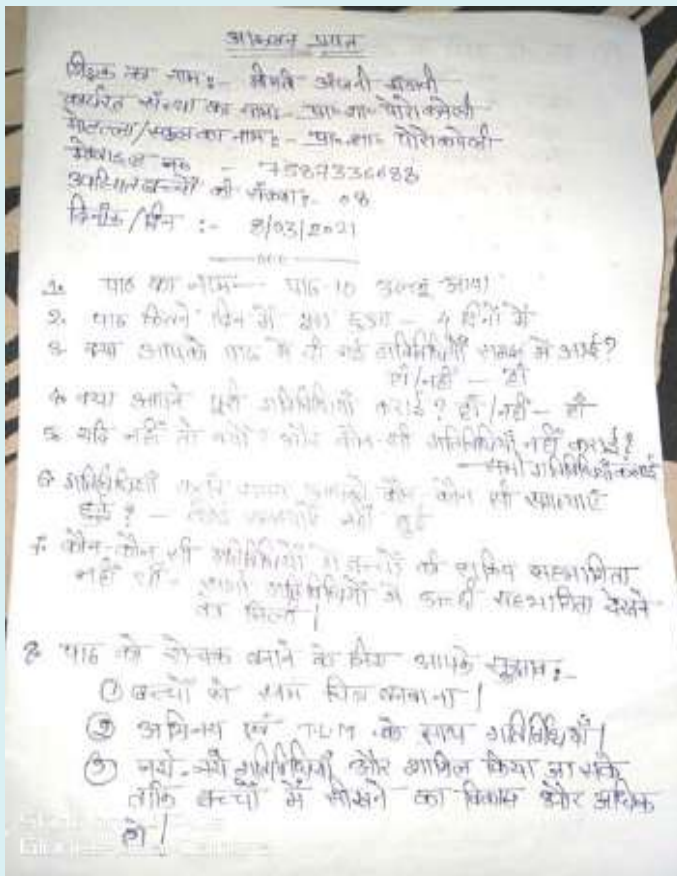 आकलन प्रपत्र
शिक्षक का नाम :- श्रीमती अंजनी
कार्यरत संस्था का नाम - प्रा० शा०
मोहल्ला/स्कूल का नाम :- प्रा० शा०
मोबाइल न० -
उपस्थित बच्चों की संख्या :- 08
दिनाँक/दिन :- 8/03/2021
1. पाठ का नाम - पाठ 10 उल्लू आया
2. पाठ कितने दिन में पूरा हुआ - 4 दिनों में
3. क्या आपको पाठ में दी गई गतिविधियाँ समझ में आई?
हाँ/नहीं - हाँ
4. क्या आपने पूरी गतिविधियाँ कराई? हाँ/नहीं - हाँ
5. यदि नहीं तो क्यों? और कौन-सी गतिविधियाँ नहीं कराई?
- सभी गतिविधियाँ कराई
6. गतिविधियाँ आपको कौन-कौन सी समस्याएँ
हुई? - नहीं हुई
7. कौन-कौन सी गतिविधियों में बच्चों की सक्रिय सहभागिता
नहीं थी - सभी गतिविधियों में सहभागिता देखने
को मिला।
8. पाठ को रोचक बनाने के लिए आपके सुझाव :-
① बच्चों से चित्र बनवाना।
② अभिनय एवं TLM के साथ गतिविधियाँ।
③ नये-नये गतिविधियाँ और शामिल किया जा सके
ताकि बच्चों में सीखने का विकास और अधिक
हो।